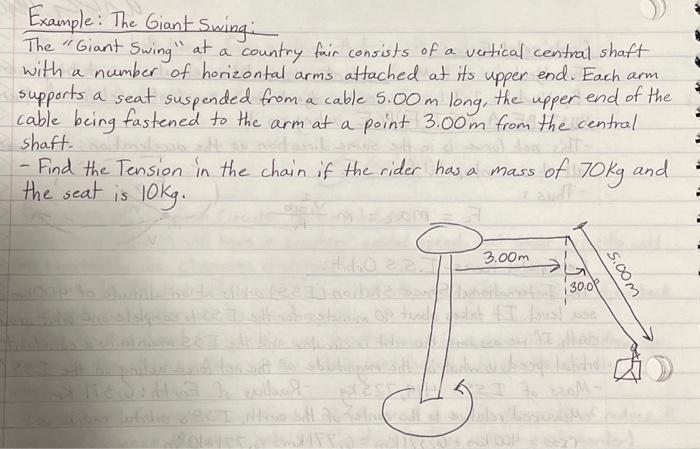 Example: The Giant Swing:
The "Giant Swing" at a country fair consists of a vertical central shaft
with a number of horizontal arms attached at its upper end. Each arm
supports a seat suspended from a cable 5.00m long, the upper end of the
cable being fastened to the arm at a point 3.00m from the central
shaft.
- Find the Tension in the chain if the rider has a mass of 70Kg and
the seat is 10kg.
3.00m
5.00m
30.0°